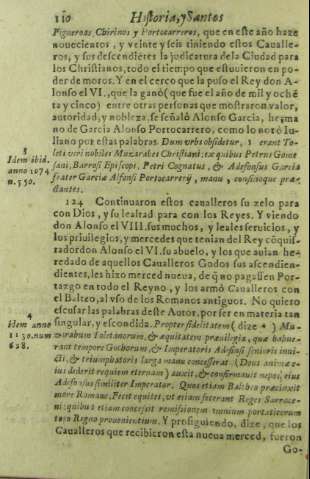 110 Historia, y Santos
Figueroas, Chirinos y Portocarreros, que en este año haze
nouecientos, y veinte y seis tiniendo estos Cavalle-
ros, y sus descendiẽtes la judicatura dela Ciudad para
los Christianos, todo el tiempo que estuuieron en po-
der de moros. Y en el cerco que la puso el Rey don A-
lonso el VI., que la ganó (que fue el año de mil y ochẽ
ta y cinco) entre otras personas que mostraron valor,
autoridad, y nobleza, se señaló Alonso Garcia, herma
no de Garcia Alonso Portocarrero, como lo notó Iu-
liano por estas palabras Dum vrbs obsidetur, 3 erant To-
leti viri nobiles Muzarabes Christiani: ex quibus Petrus Gome
lani, Barrosi Episcopi, Petri Cognatus, & Adefonsus Garcia
frater Garciæ Alfonsi Portocarrerij, manu, consilioque præ-
stantes.
3
Idem ibid.
anno 1074
n. 550.
124 Continuaron estos caualleros su zelo para
con Dios, y su lealtad para con los Reyes. Y viendo
don Alonso el VIII. sus muchos, y leales seruicios, y
los priuilegios, y mercedes que tenian del Rey cõquis-
tador don Alonso el VI. su abuelo, y los que auian he-
redado de aquellos Caualleros Godos sus ascendien-
dientes, les hizo merced nueua, de q̃ no pagassen Por-
tazgo en todo el Reyno, y los armó Caualleros con
el Balteo, al vso de los Romanos antiguos. No quiero
escusar las palabras deste Autor, por ser en materia tan
singular, y escondida. Propter fidelitatem (dize 4) Mu-
zarabum Toletanorum, & æquitatem præuilegia, quæ habue-
rant tempore Gothorum, & Imperatoris Adefonsi senioris inui-
cti, & triumphatoris larga manu concesserat (Deus animæ e-
ius dederit requiem eternam) auxit, & confirmauit nepos, eius
Adefonsus similiter Imperator. Quos etiam Baltheo præcinxit
more Romano. Fecit equites, vt etiam fecerant Reges Sarrace-
ni: quibus etiam concessit remissionem omnium portaticorum
toto Regno prouenientium. Y prosiguiendo, dize, que los
Caualleros que recibieron esta nueua merced, fueron
4
Idem anno
1150. num
628.
Go-